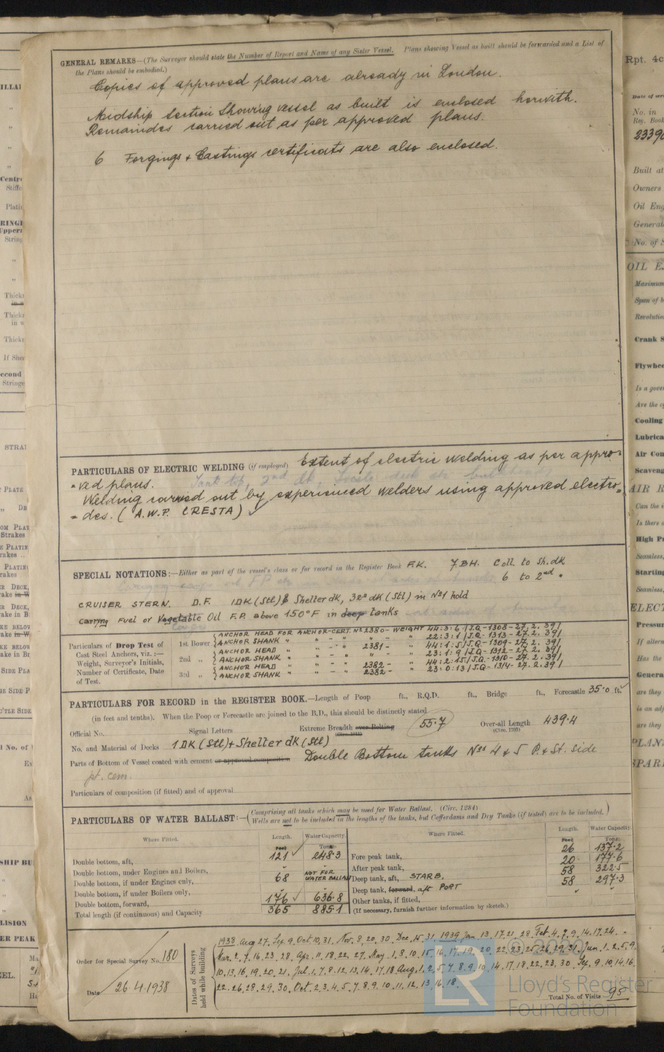 GENERAL REMARKS—(The Surveyor should state the Number of Report and Name of any Sister Vessel. Plans showing Vessel as built should be forwarded and a List of
the Plans should be embodied.)
Copies of approved plans are already in London.
Midship Section Showing vessel as built is enclosed herewith.
Remainder carried out as per approved plans.
6 Forgings & Castings certificates are also enclosed.
PARTICULARS OF ELECTRIC WELDING (if employed) Extent of electric welding as per appro-
-ved plans.
Welding carried out by experienced welders using approved electro-
-des. (A.W.P. CRESTA)
SPECIAL NOTATIONS:—Either as part of the vessel's class or for record on the Register Book F.K. 7 BH. Coll. to Sh. dk
6 to 2nd "
CRUISER STERN. D.F. 1DK (Stl) & Shelter dk, 3rd dk (Stl) in No1 hold
Carrying Fuel or Vegetable Oil F.P. above 150°F in deep tanks
Particulars of Drop Test of
Cast Steel Anchors, viz.:—
Weight, Surveyor's Initials,
Number of Certificate, Date
of Test.
1st Bower
ANCHOR HEAD FOR ANCHOR CERT. No 2380 - WEIGHT 44:3:6 / J.Q - 1308 - 27.2.39
ANCHOR SHANK " " - " " 22:3:1 / J.Q - 1313 - 27.2.39
2nd "
ANCHOR HEAD " " - 2381 - " 44:1:5 / J.Q - 1309 - 27.2.39
ANCHOR SHANK " " - " " 23:1:9 / J.Q - 1312 - 27.2.39
3rd "
ANCHOR HEAD " " - 2382 - " 44:2:15 / J.Q - 1310 - 27.2.39
ANCHOR SHANK " " - 2382 - " 23:0:13 / J.Q - 1314 - 27.2.39
PARTICULARS FOR RECORD in the REGISTER BOOK.—Length of Poop ft., R.Q.D. ft., Bridge ft., Forecastle 35.0 ft.
(in feet and tenths). When the Poop or Forecastle are joined to the B.D., this should be distinctly stated
Official No. Signal Letters Extreme Breadth over Belting 55.7 Over-all Length 439.4
No. and Material of Decks 1 DK (Stl) & Shelter dk (Stl)
Parts of Bottom of Vessel coated with cement or approved composition Double Bottom tanks Nos 4 & 5 P. & St. side
pt. cem.
Particulars of composition (if fitted) and of approval
PARTICULARS OF WATER BALLAST:—(Comprising all tanks which may be used for Water Ballast. (Circ. 1284)
Wells are not to be included in the lengths of the tanks, but Cofferdams and Dry Tanks (if tested) are to be included.)
Where Fitted. Length. Water Capacity. Where Fitted. Length. Water Capacity.
Feet Tons. Feet Tons.
Double bottom, aft, 121 248.3 Fore peak tank, 26 137.2
Double bottom, under Engines and Boilers, " After peak tank, 20 177.6
Double bottom, if under Engines only, 68 NOT FOR WATER BALLAST Deep tank, aft, STARB. 58 322.5
Double bottom, if under Boilers only, " Deep tank, forward, aft PORT 58 297.3
Double bottom, forward, 176 636.8 Other tanks, if fitted, " "
Total length (if continuous) and Capacity 365 885.1 (If necessary, furnish further information by sketch.)
Order for Special Survey No. 180
Date 26.4.1938
Dates of Surveys held while building
1938 Aug 27, Sep. 9, Oct. 10, 31, Nov. 8, 20, 30, Dec. 15, 31 1939 Jan 13, 17, 21, 28 Feb. 4, 7, 9, 14, 17, 24.
Mar. 2, 7, 14, 23, 28 Apr. 11, 18, 22, 27, May 1, 8, 10, 15, 16, 17, 19, 20, 22, 23, 25, 26, 29, 31, Jun. 1, 2, 5, 9,
10, 13, 16, 19, 20, 21, Jul. 1, 7, 8, 12, 13, 14, 17, 18 Aug. 1, 2, 5, 7, 8, 9, 10, 14, 17, 18, 22, 28, 30 Sep. 9, 10, 14, 16,
22, 26, 28, 29, 30, Oct. 2, 3, 4, 5, 7, 8, 9, 10, 11, 12, 13, 16, 18.
Total No. of Visits 95
LR
© 2021
Lloyd's Register
Foundation
Rpt. 4c
No. in
Reg. Book
2339
Built at
Owners
Oil Eng
General
No. of S
OIL E
Maximum
Span of b
Revolution
Crank S
Flywhe
Is a gover
Are the cy
Cooling
Lubrica
Air Con
Scaveng
AIR R
Can the i
Is there a
High P
Seamless,
Starting
Seamless,
ELECT
Pressur
If altern
Has the
General
are they
is an adj
are they
PLAN
SPAR